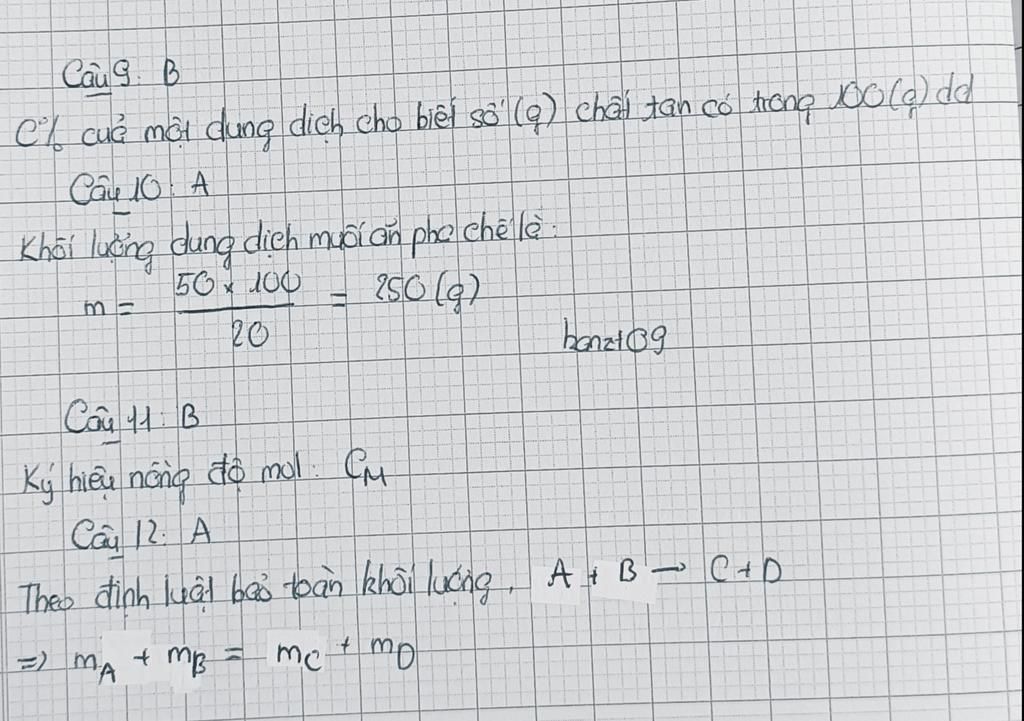 Câu 9: B
C% của một dung dịch cho biết số (g) chất tan có trong 100 (g) dd
Câu 10: A
Khối lượng dung dịch muối ăn pha chế là:
m = 50 x 100 / 20 = 250 (g)
hanzt09
Câu 11: B
Ký hiệu nồng độ mol: CM
Câu 12: A
Theo định luật bảo toàn khối lượng, A + B → C + D
=> mA + mB = mC + mD